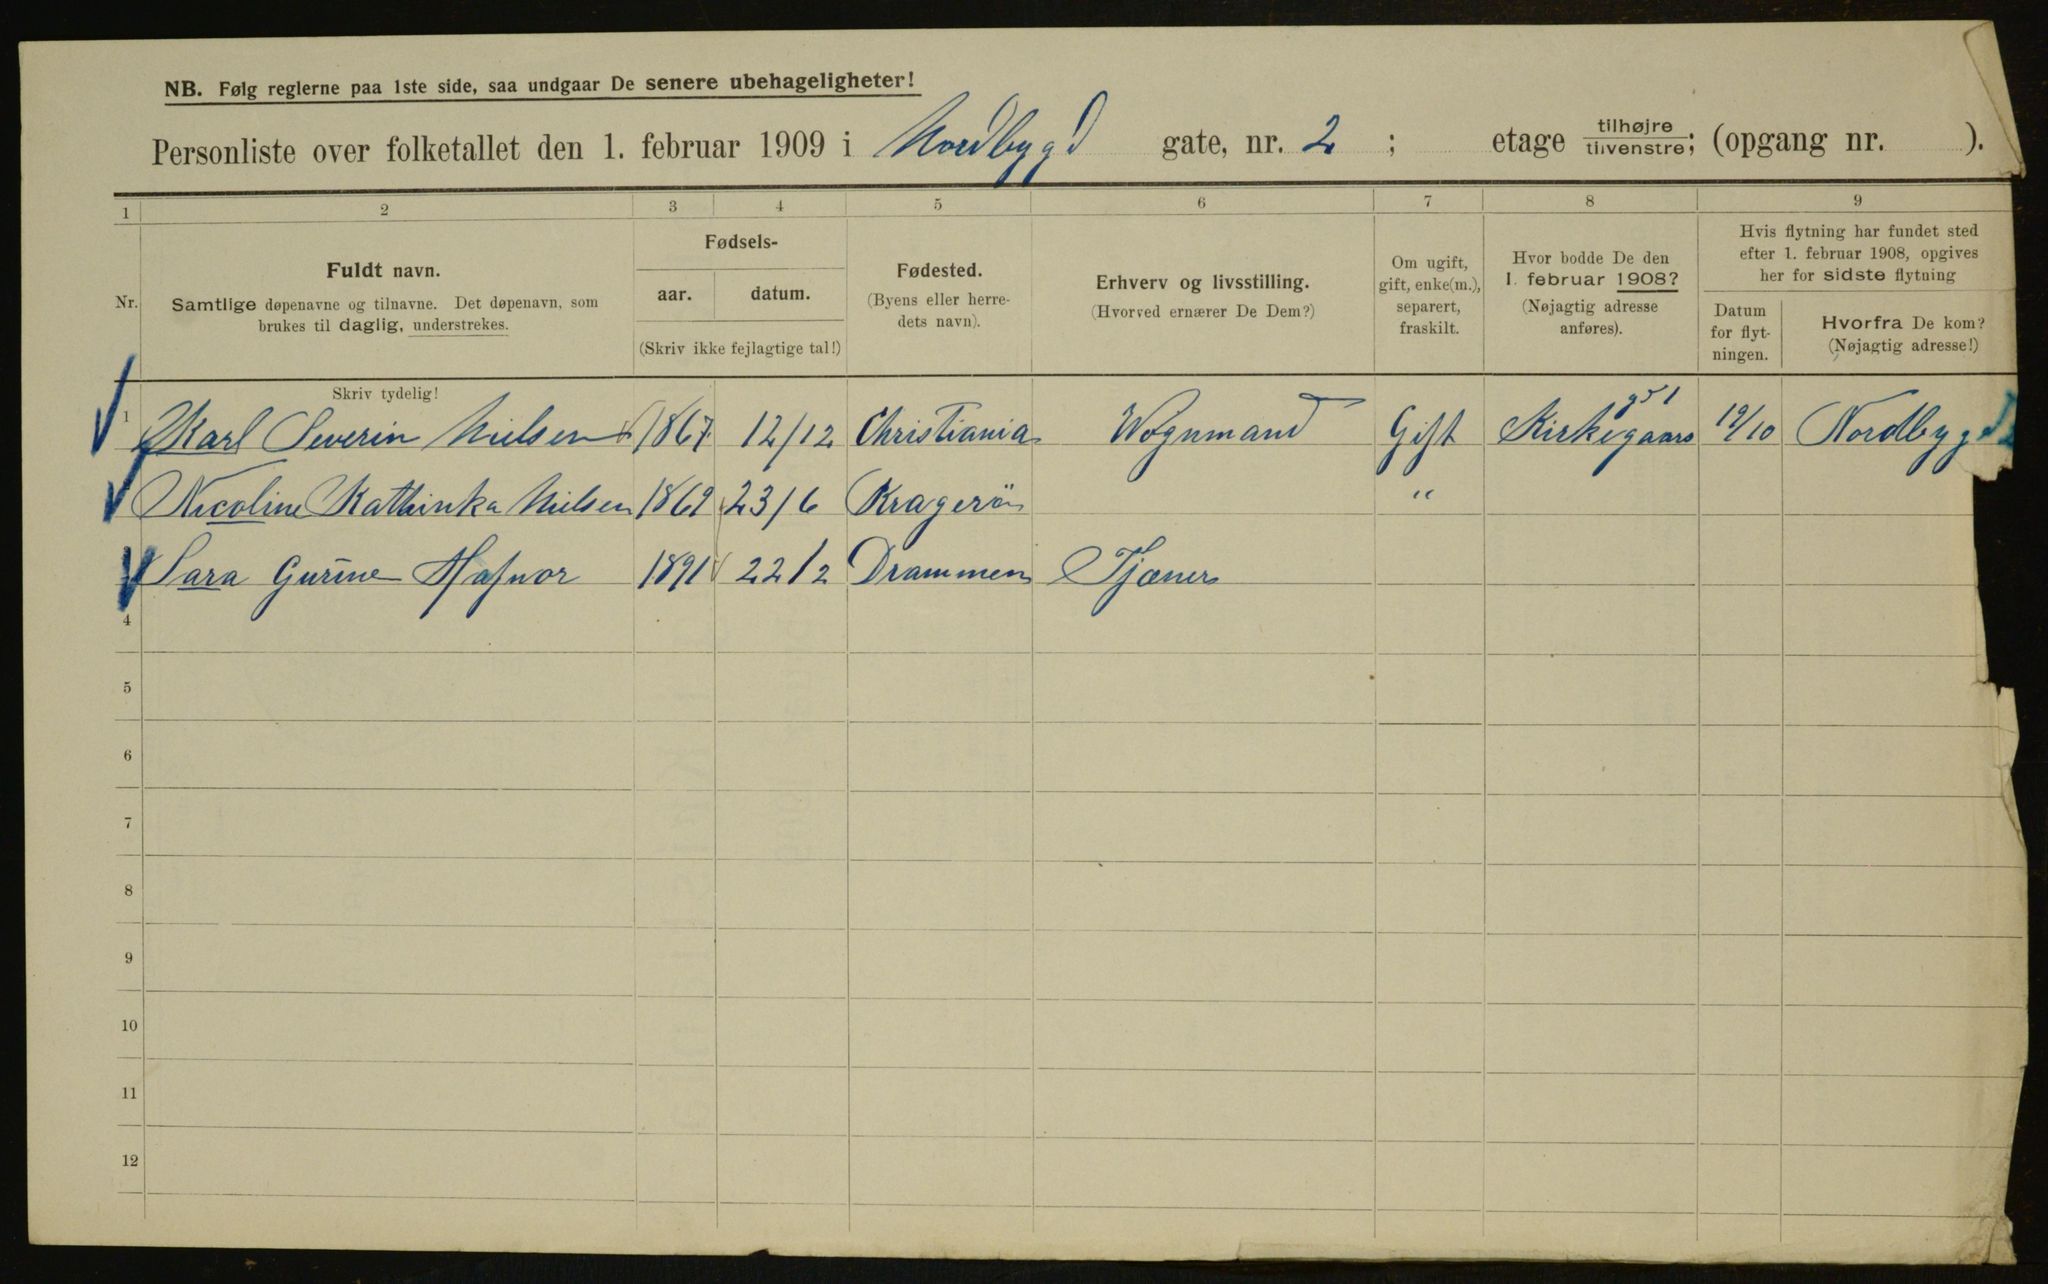 NB. Følg reglerne paa 1ste side, saa undgaar De senere ubehageligheter!
Personliste over folketallet den 1. februar 1909 i Nordbygd gate, nr. 2 ; etage tilhøjre tilvenstre; (opgang nr. ).
1 2 3 4 5 6 7 8 9
Nr.
Fuldt navn.
Samtlige døpenavne og tilnavne. Det døpenavn, som
brukes til daglig, understrekes.
Fødsels-
aar. datum.
(Skriv ikke fejlagtige tal!)
Fødested.
(Byens eller herre-
dets navn).
Erhverv og livsstilling.
(Hvorved ernærer De Dem?)
Om ugift,
gift, enke(m.),
separert,
fraskilt.
Hvor bodde De den
1. februar 1908?
(Nøjagtig adresse
anføres).
Hvis flytning har fundet sted
efter 1. februar 1908, opgives
her for sidste flytning
Datum
for flyt-
ningen.
Hvorfra De kom?
(Nøjagtig adresse!)
Skriv tydelig!
1 Karl Severin Nielsen 1867 12/12 Christiania Wognmand Gift Kirkegaars /10 Nordbygd
Nicoline Kathinka Nielsen 1869 23/6 Kragerö "
Sara Gurine Hafnor 1891 22/2 Drammen Tjener
4
5
6
7
8
9
10
11
12